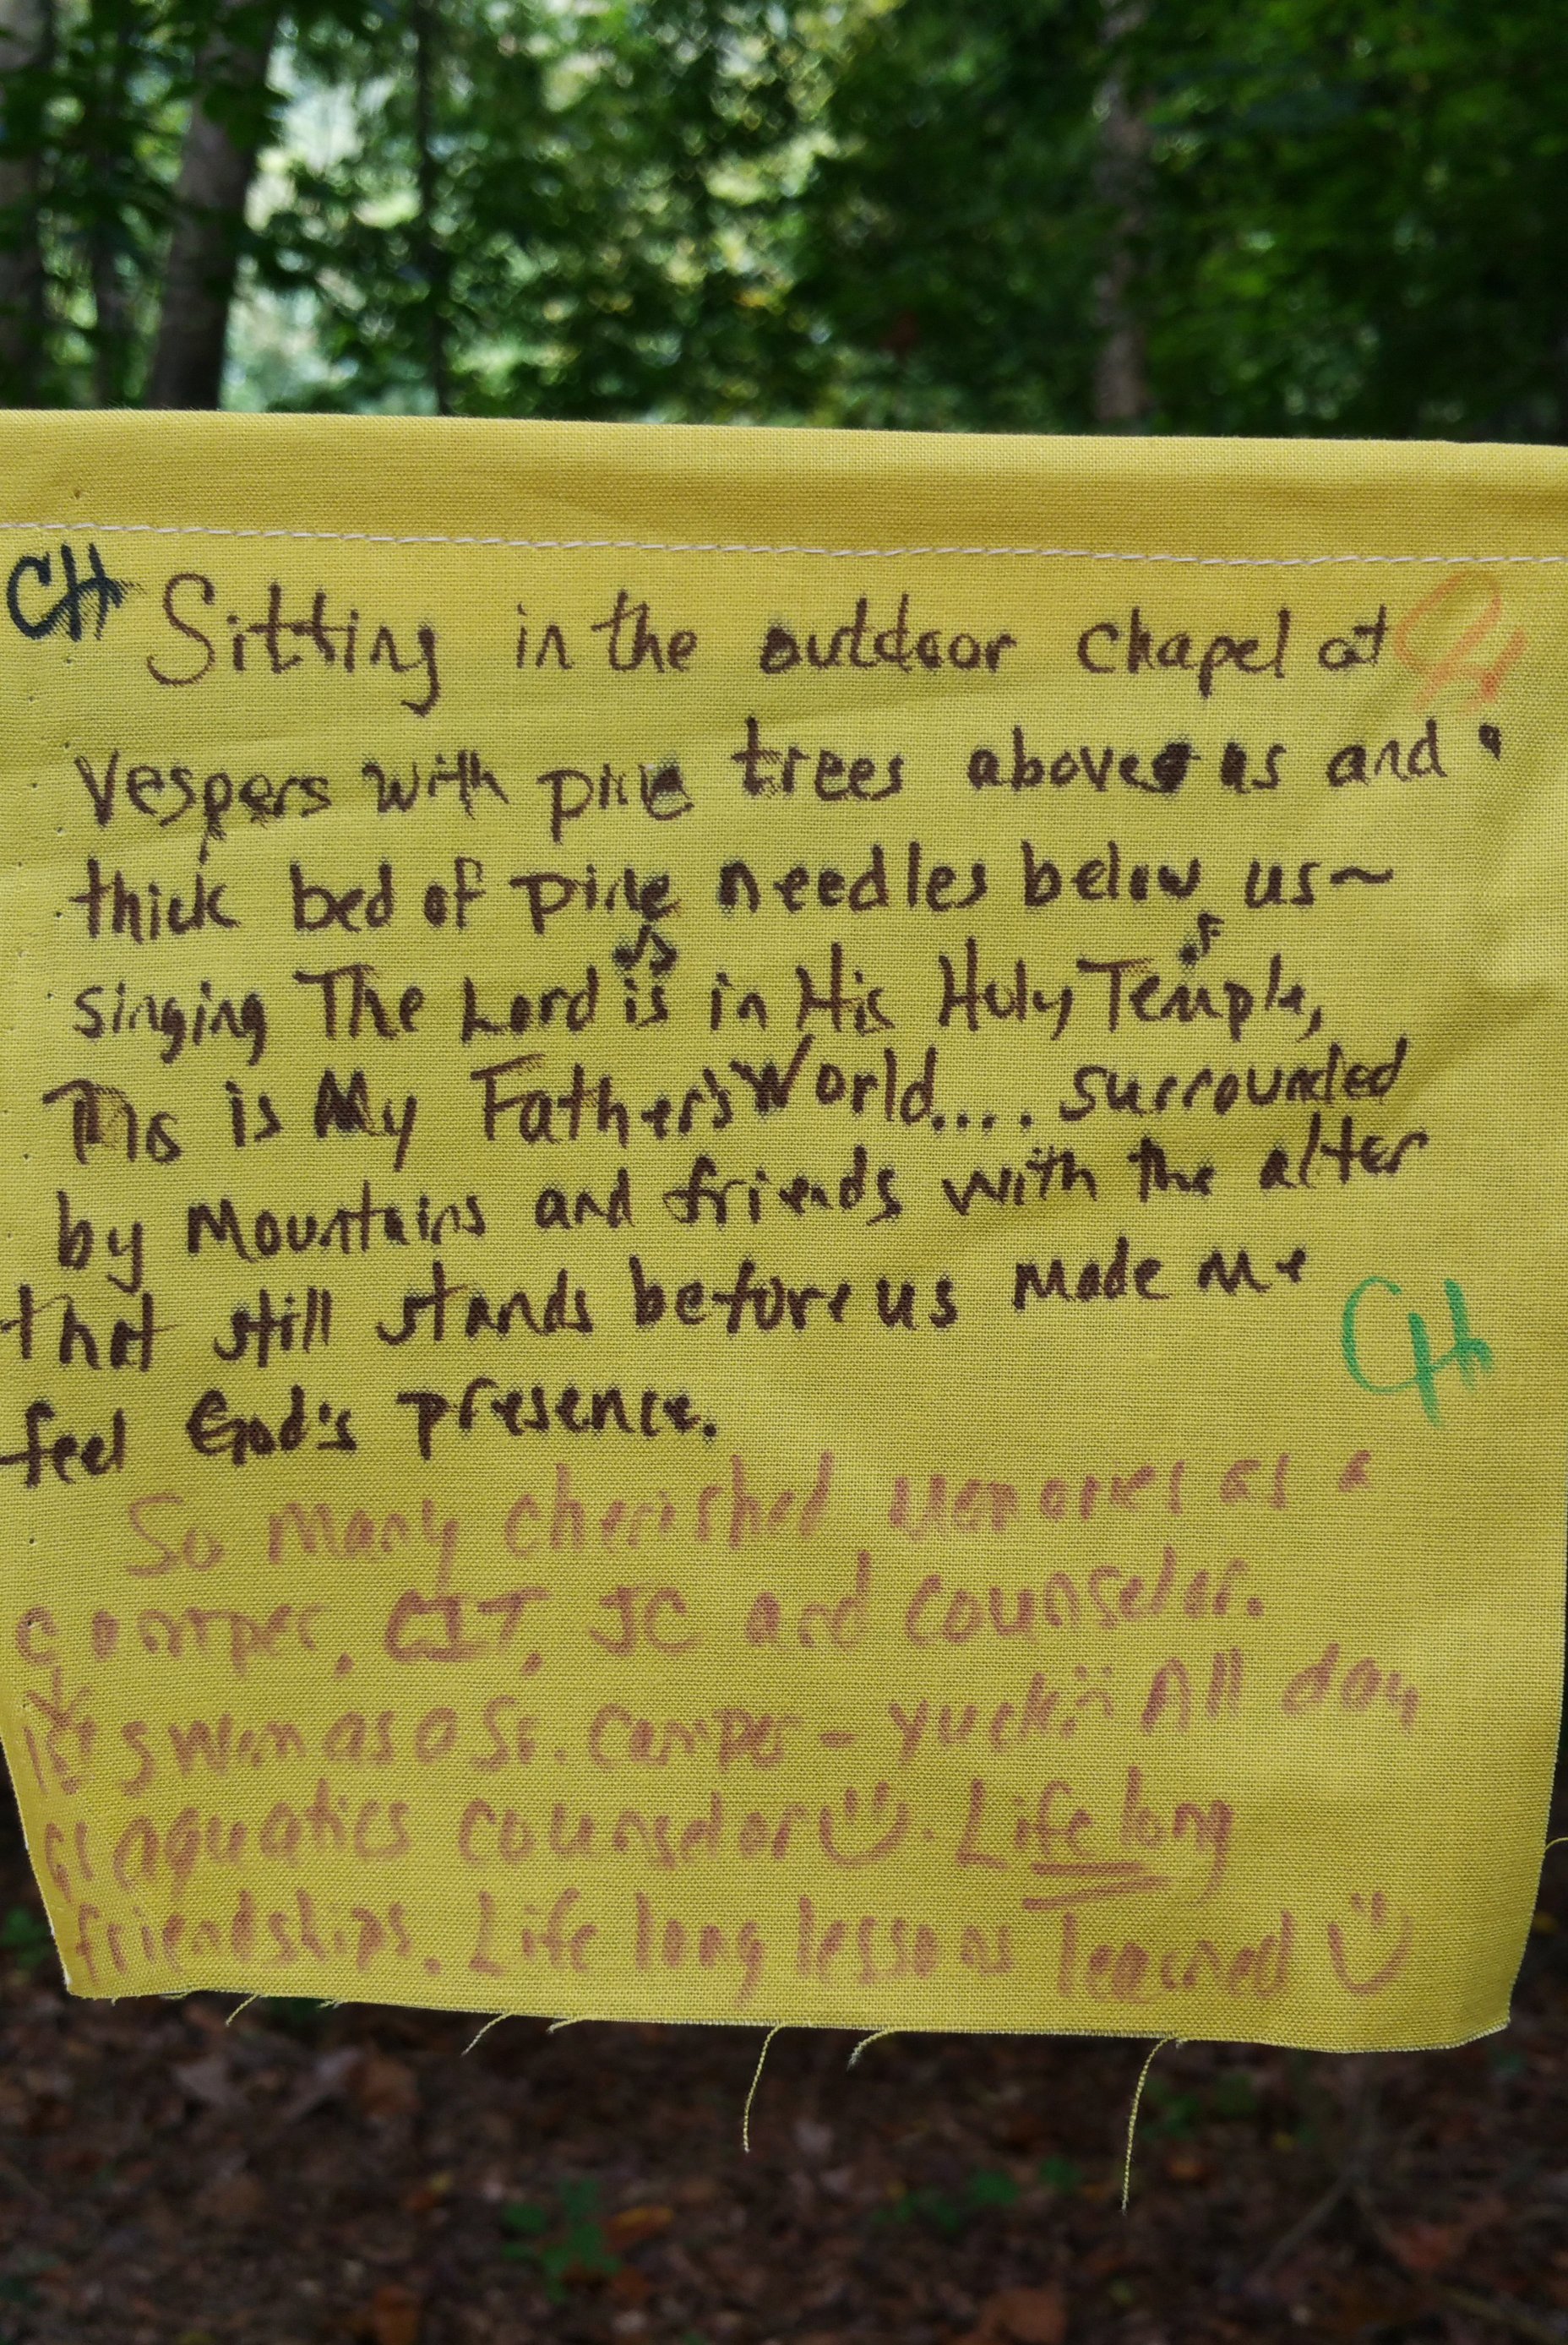 CH Sitting in the outdoor chapel at CH
Vespers with pine trees above us and
thick bed of pine needles below us~
singing The Lord is in His Holy Temple,
This is My Father's World.... surrounded
by Mountains and friends with the alter
that still stands before us made me
CH
feel God's presence.
So many cherished memories as a
camper, CIT, JC and counselor.
1st swim as a Sr. camper - yuck All day
as aquatics counselor. Life long
friendships. Life long lessons learned